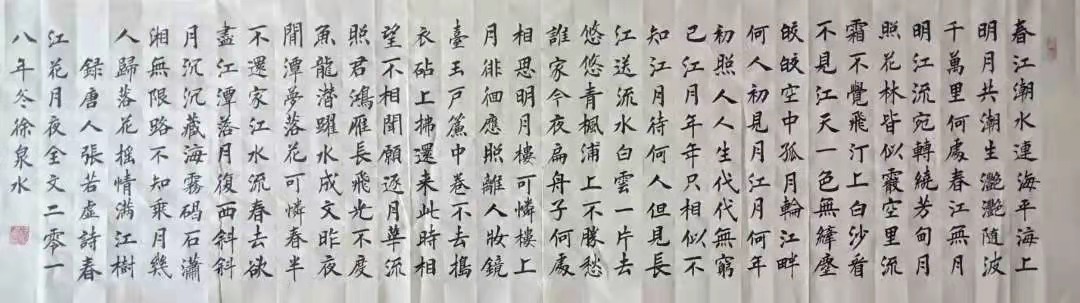 春江潮水連海平海上
明月共潮生灧灧随波
千萬里何處春江無月
明江流宛轉繞芳甸月
照花林皆似霰空里流
霜不覺飛汀上白沙看
不見江天一色無纖塵
皎皎空中孤月輪江畔
何人初見月江月何年
初照人人生代代無窮
已江月年年只相似不
知江月待何人但見長
江送流水白雲一片去
悠悠青楓浦上不勝愁
誰家今夜扁舟子何處
相思明月樓可憐樓上
月徘徊應照離人妝鏡
臺玉戶簾中卷不去搗
衣砧上拂還来此時相
望不相聞願逐月華流
照君鴻雁長飛光不度
魚龍潜躍水成文昨夜
閒潭夢落花可憐春半
不還家江水流春去欲
盡江潭落月復西斜斜
月沉沉藏海霧码石瀟
湘無限路不知乘月幾
人歸落花摇情滿江樹
録唐人張若虚詩春
江花月夜全文二零一
八年冬徐泉水